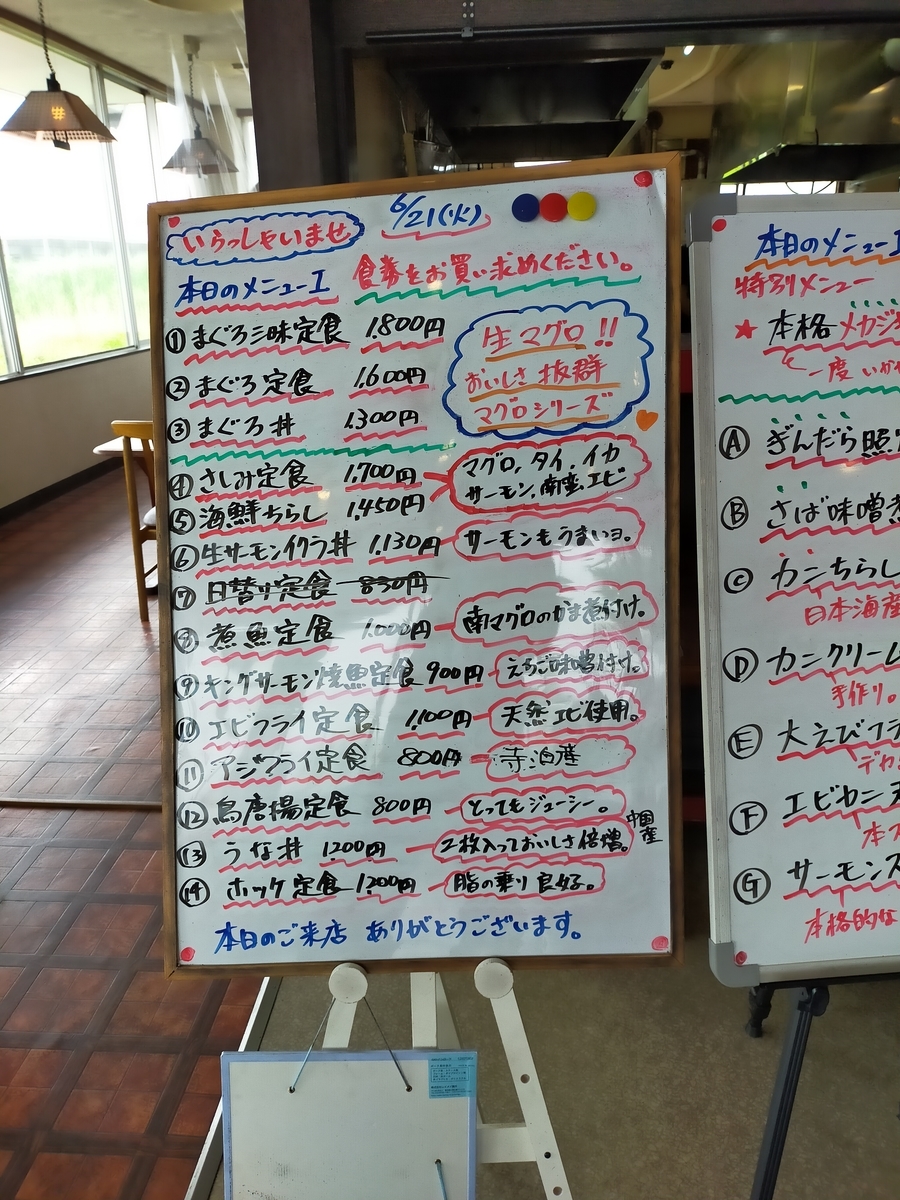 いらっしゃいませ 6/21(火)
本日のメニューI 食券をお買い求めください。
① まぐろ三昧定食 1.800円
② まぐろ定食 1,600円
③ まぐろ丼 1.300円
生マグロ!!
おいしさ抜群
マグロシリーズ
④ さしみ定食 1,700円
⑤ 海鮮ちらし 1,450円
マグロ,タイ,イカ
サーモン,南蛮エビ
⑥ 生サーモンイクラ丼 1,130円 サーモンもうまいョ。
⑦ 日替り定食 830円
⑧ 煮魚定食 1.000円 南マグロのかま煮付け。
⑨ キングサーモン焼魚定食 900円 えちご味噌付け。
⑩ エビフライ定食 1,100円 天然エビ使用。
⑪ アジフライ定食 800円 寺泊産
⑫ 鳥唐揚定食 800円 とってもジューシー。
⑬ うな丼 1200円 2枚入っておいしさ倍増。 中国産
⑭ ホッケ定食 1,200円 脂の乗り良好。
本日のご来店 ありがとうございます。
本日のメニュー
特別メニュー
★ 本格メカジ
一度いか
Ⓐ ぎんだら照
Ⓑ さば味噌煮
Ⓒ カニちらし
日本海産
Ⓓ カニクリーム
手作り。
Ⓔ 大えびフラ
デカ
Ⓕ エビカニ天
本ズ
Ⓖ サーモンス
本格的な